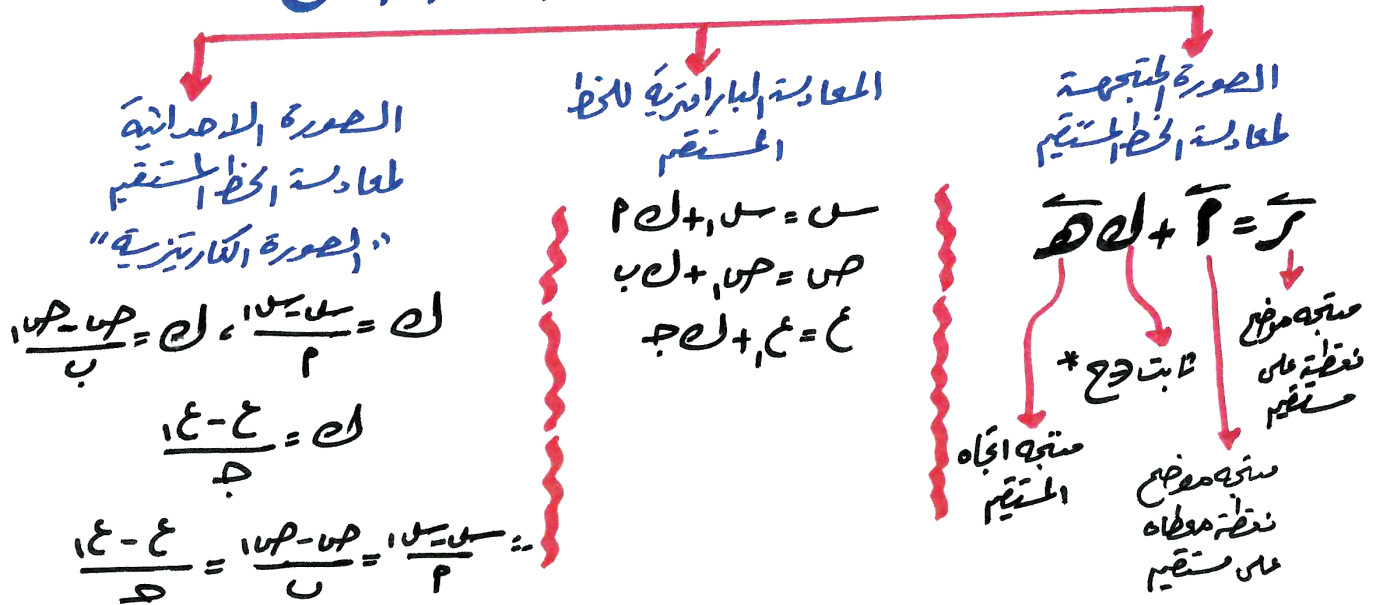 الصورة المتجهة
لمعادلة الخط المستقيم
ر = أ + ك هـ
متجه موضع
نقطة على
مستقيم
متجه موضع
نقطة معطاه
على مستقيم
ثابت ∈ ح *
متجه اتجاه
المستقيم
المعادلة البارامترية للخط
المستقيم
س = س₁ + ك أ
ص = ص₁ + ك ب
ع = ع₁ + ك جـ
الصورة الاحداثية
لمعادلة الخط المستقيم
"الصورة الكارتيزية"
ك = (س - س₁)/أ ، ك = (ص - ص₁)/ب
ك = (ع - ع₁)/جـ
∴ (س - س₁)/أ = (ص - ص₁)/ب = (ع - ع₁)/جـ